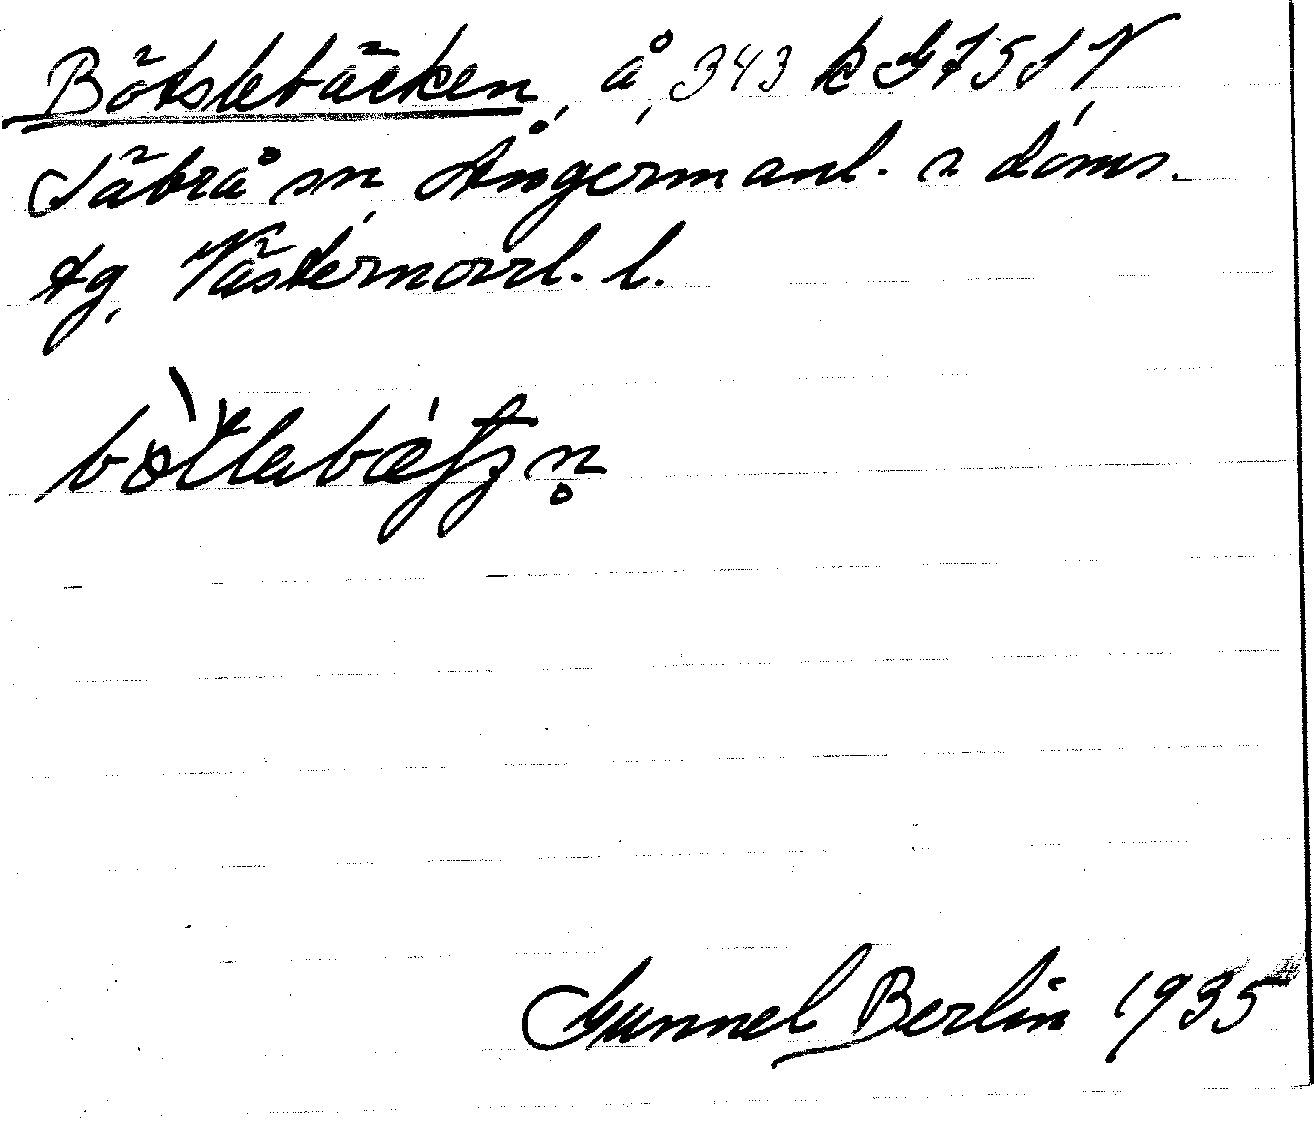 Bötslebäcken, å, 343 k G 7 5 d N
Säbrå sn Ångermanl. s doms.
tg, Västernorrl. l.
Gunnel Berlin 1935